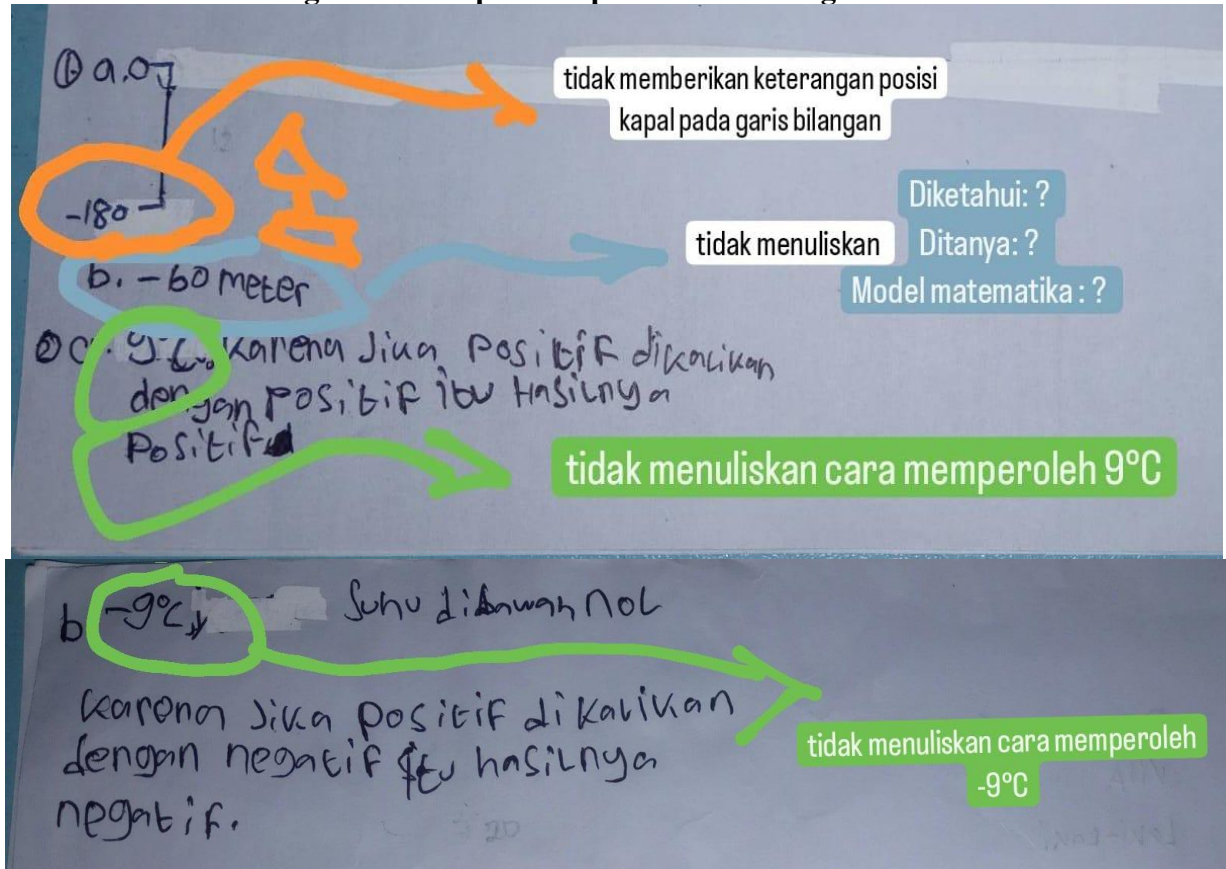 ① a. 0
tidak memberikan keterangan posisi
kapal pada garis bilangan
-180
b. -60 meter
tidak menuliskan
Diketahui: ?
Ditanya: ?
Model matematika : ?
② a. 9°C, karena Jika Positif dikalikan
dengan positif itu Hasilnya
Positif
tidak menuliskan cara memperoleh 9°C
b -9°C, Suhu dibawah nol
karena Jika positif dikalikan
dengan negatif itu hasilnya
negatif.
tidak menuliskan cara memperoleh
-9°C